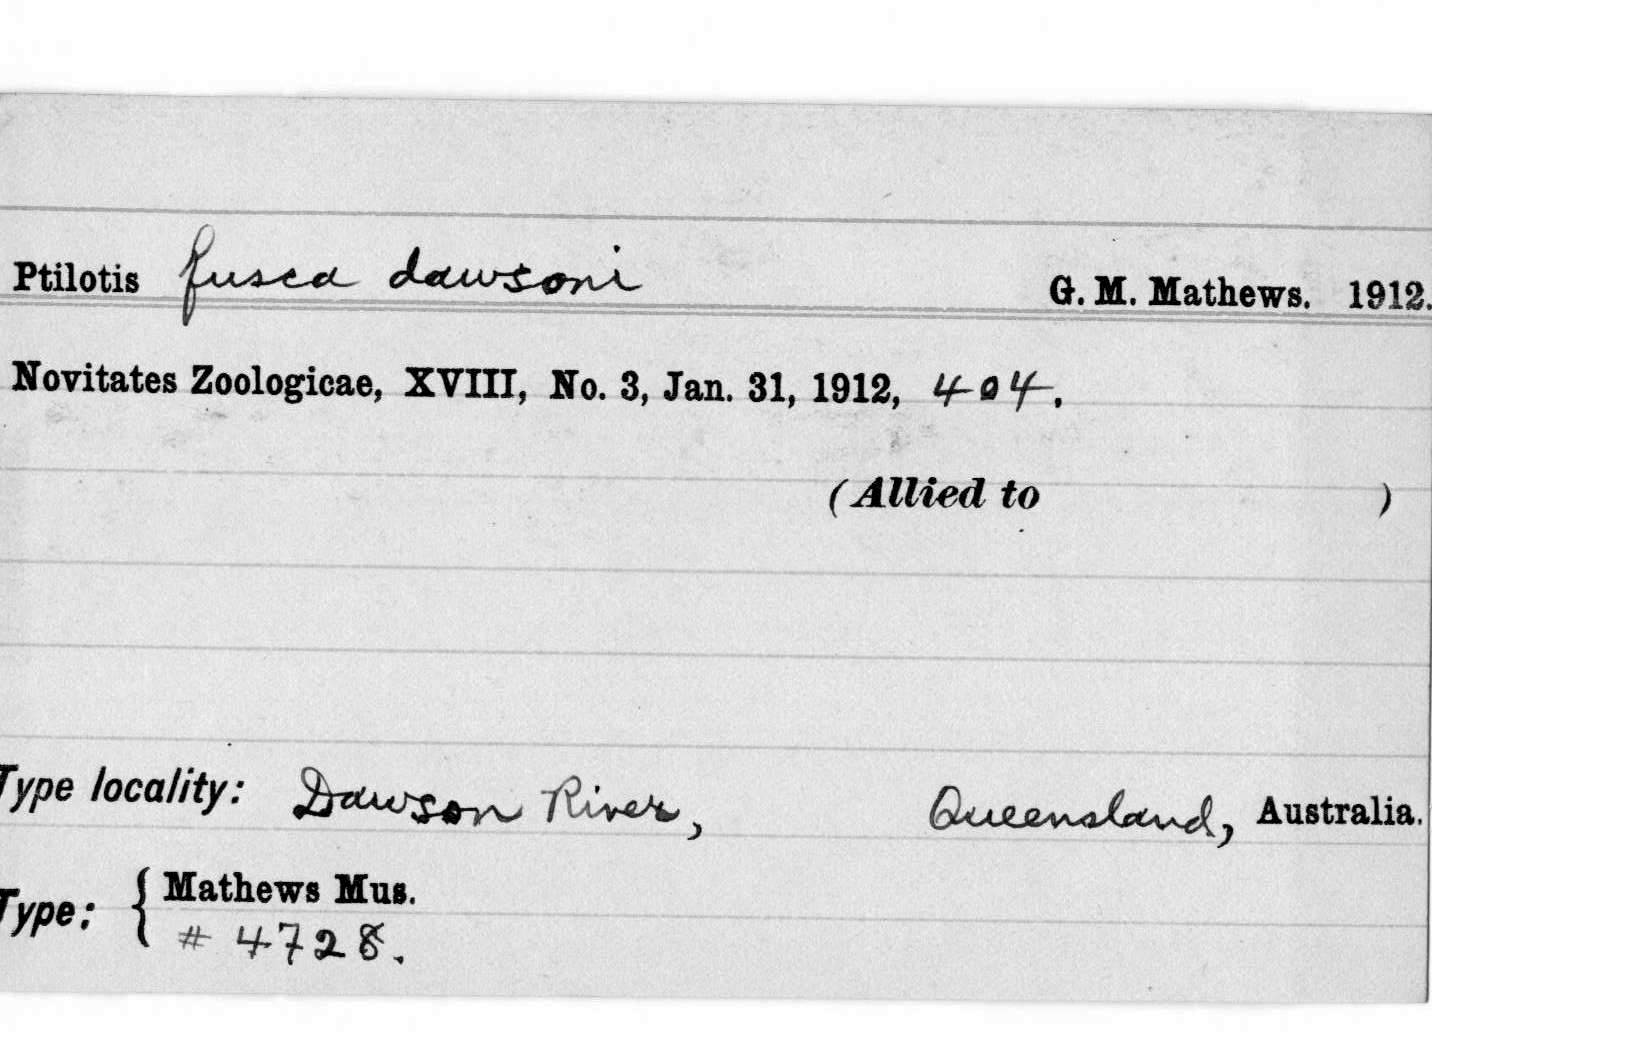 Ptilotis fusca dawsoni G. M. Mathews. 1912.
Novitates Zoologicae, XVIII, No. 3, Jan. 31, 1912, 404.
(Allied to )
Type locality: Dawson River, Queensland, Australia.
Type: { Mathews Mus.
# 4728.